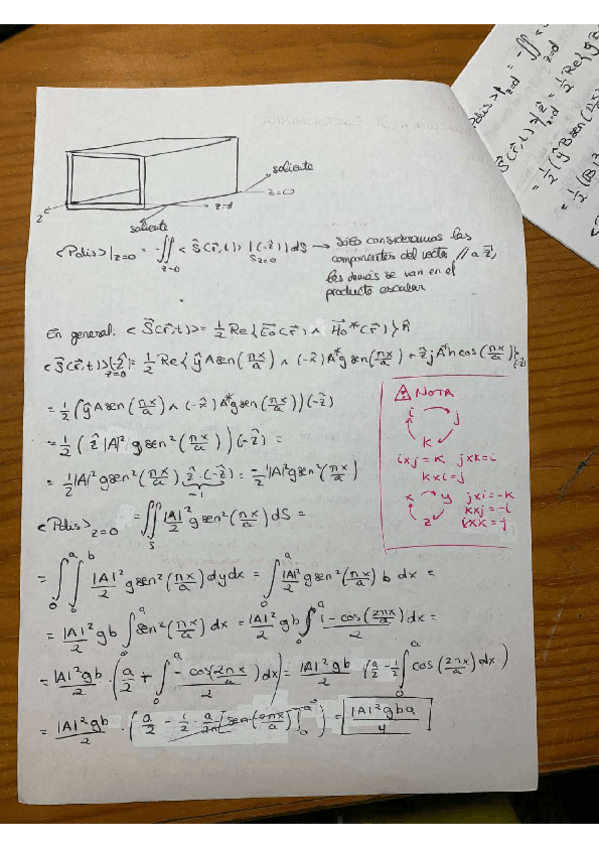 saliente
z=0
z
z=d
saliente
<Pdis>|z=0 = -∬z=0 <S⃗(r⃗,t)>|(-ẑ)|Sz=0 dS → Sólo consideramos las
componentes del vector // a ẑ,
las demás se van en el
producto escalar
En general: <S⃗(r⃗,t)> = 1/2 Re{E⃗o(r⃗) ∧ H⃗o*(r⃗)}n̂
<S⃗(r⃗,t)>(-ẑ)z=0 = 1/2 Re{ŷ A sen(πx/a) ∧ (-x̂)A*g sen(πx/a) + ẑjA*h cos(πx/a)}(-ẑ)
= 1/2 (ŷ A sen(πx/a) ∧ (-x̂)A*g sen(πx/a))(-ẑ)
= 1/2 (ẑ|A|² g sen²(πx/a))(-ẑ) =
= 1/2 |A|² g sen²(πx/a) ẑ·(-ẑ) = -1/2 |A|² g sen²(πx/a)
-1
<Pdis>z=0 = ∬S |A|²/2 g sen²(πx/a) dS =
= ∫0a ∫0b |A|²/2 g sen²(πx/a) dy dx = ∫0a |A|²/2 g sen²(πx/a) b dx =
= |A|²gb/2 ∫0a sen²(πx/a) dx = |A|²gb/2 ∫0a 1-cos(2πx/a)/2 dx =
= |A|²gb/2 · (a/2 + ∫0a -cos(2πx/a)/2 dx) = |A|²gb/2 (a/2 - 1/2 ∫0a cos(2πx/a) dx)
= |A|²gb/2 · (a/2 - 1/2 · a/2π [sen(2πx/a)]0a) = |A|²gba/4
NOTA
i j
k
ixj=k jxk=i
kxi=j
x y
z
jxi=-k
kxj=-i
ixk=-j
<Pdis>z=d = -∬z=d
<S⃗(r⃗,t)>ẑ|z=d = 1/2 Re{ŷB
= 1/2 (ŷ B sen(πx/a)
= 1/2 (|B|²